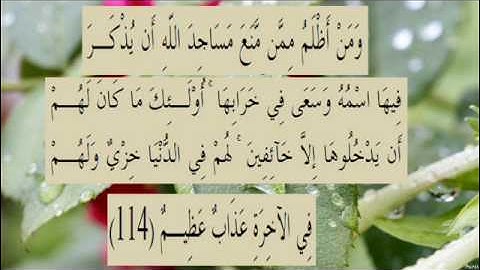 وَمَنْ أَظْلَمُ مِمَّن مَّنَعَ مَسَاجِدَ اللَّهِ أَن يُذْكَــرَ
فِيهَا اسْمُهُ وَسَعَى فِي خَرَابِهَا ۚ أُوْلَــئِكَ مَا كَانَ لَهُــمْ
أَن يَدْخُلُوهَا إِلاَّ خَآئِفِينَ ۚ لَهُمْ فِي الدُّنْيَا خِزْيٌ وَلَهُــمْ
فِي الآخِرَةِ عَذَابٌ عَظِيــمٌ (114)